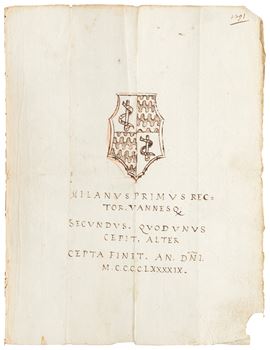 1291
MILANUS PRIMUS REC=
TOR. VANNES Q
SECUNDUS. QUOD UNUS
CEPIT. ALTER
CEPTA FINIT. AN. DNI.
M.CCCCLXXXXIX.